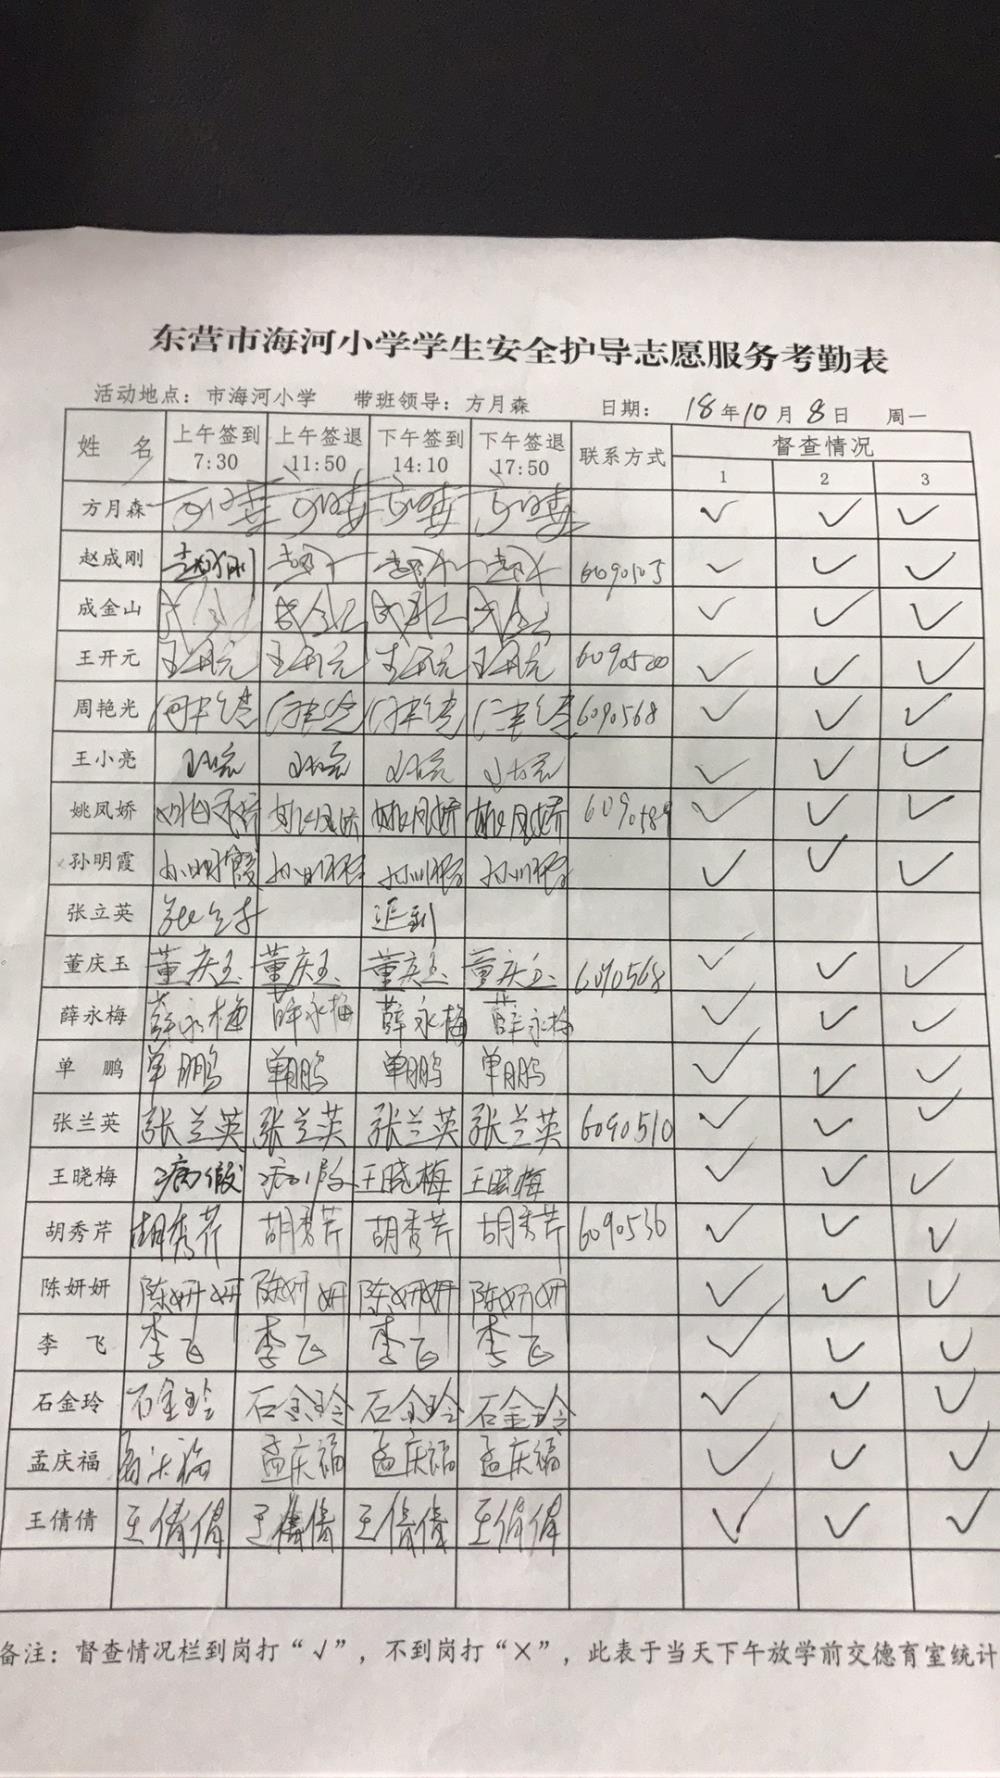 东营市海河小学学生安全护导志愿服务考勤表
活动地点：市海河小学 带班领导：方月森 日期： 18年10月8日 周一
姓 名 上午签到 7:30 上午签退 11:50 下午签到 14:10 下午签退 17:50 联系方式 督查情况
1 2 3
方月森 ✓ ✓ ✓
赵成刚 赵成刚 6090103 ✓ ✓ ✓
成金山 ✓ ✓ ✓
王开元 王开元 王开元 王开元 王开元 6090520 ✓ ✓ ✓
周艳光 6090568 ✓ ✓ ✓
王小亮 ✓ ✓ ✓
姚凤娇 姚凤娇 姚凤娇 姚凤娇 姚凤娇 6090589 ✓ ✓ ✓
孙明霞 孙明霞 孙明霞 孙明霞 孙明霞 ✓ ✓ ✓
张立英 迟到
董庆玉 董庆玉 董庆玉 董庆玉 董庆玉 6090568 ✓ ✓ ✓
薛永梅 薛永梅 薛永梅 薛永梅 薛永梅 ✓ ✓ ✓
单 鹏 单鹏 单鹏 单鹏 单鹏 ✓ ✓ ✓
张兰英 张兰英 张兰英 张兰英 张兰英 6090510 ✓ ✓ ✓
王晓梅 病假 病假 王晓梅 王晓梅 ✓ ✓ ✓
胡秀芹 胡秀芹 胡秀芹 胡秀芹 胡秀芹 6090536 ✓ ✓ ✓
陈妍妍 陈妍妍 陈妍妍 陈妍妍 陈妍妍 ✓ ✓ ✓
李 飞 李飞 李飞 李飞 李飞 ✓ ✓ ✓
石金玲 石金玲 石金玲 石金玲 石金玲 ✓ ✓ ✓
孟庆福 孟庆福 孟庆福 孟庆福 孟庆福 ✓ ✓ ✓
王倩倩 王倩倩 王倩倩 王倩倩 王倩倩 ✓ ✓ ✓
备注：督查情况栏到岗打“√”，不到岗打“×”，此表于当天下午放学前交德育室统计